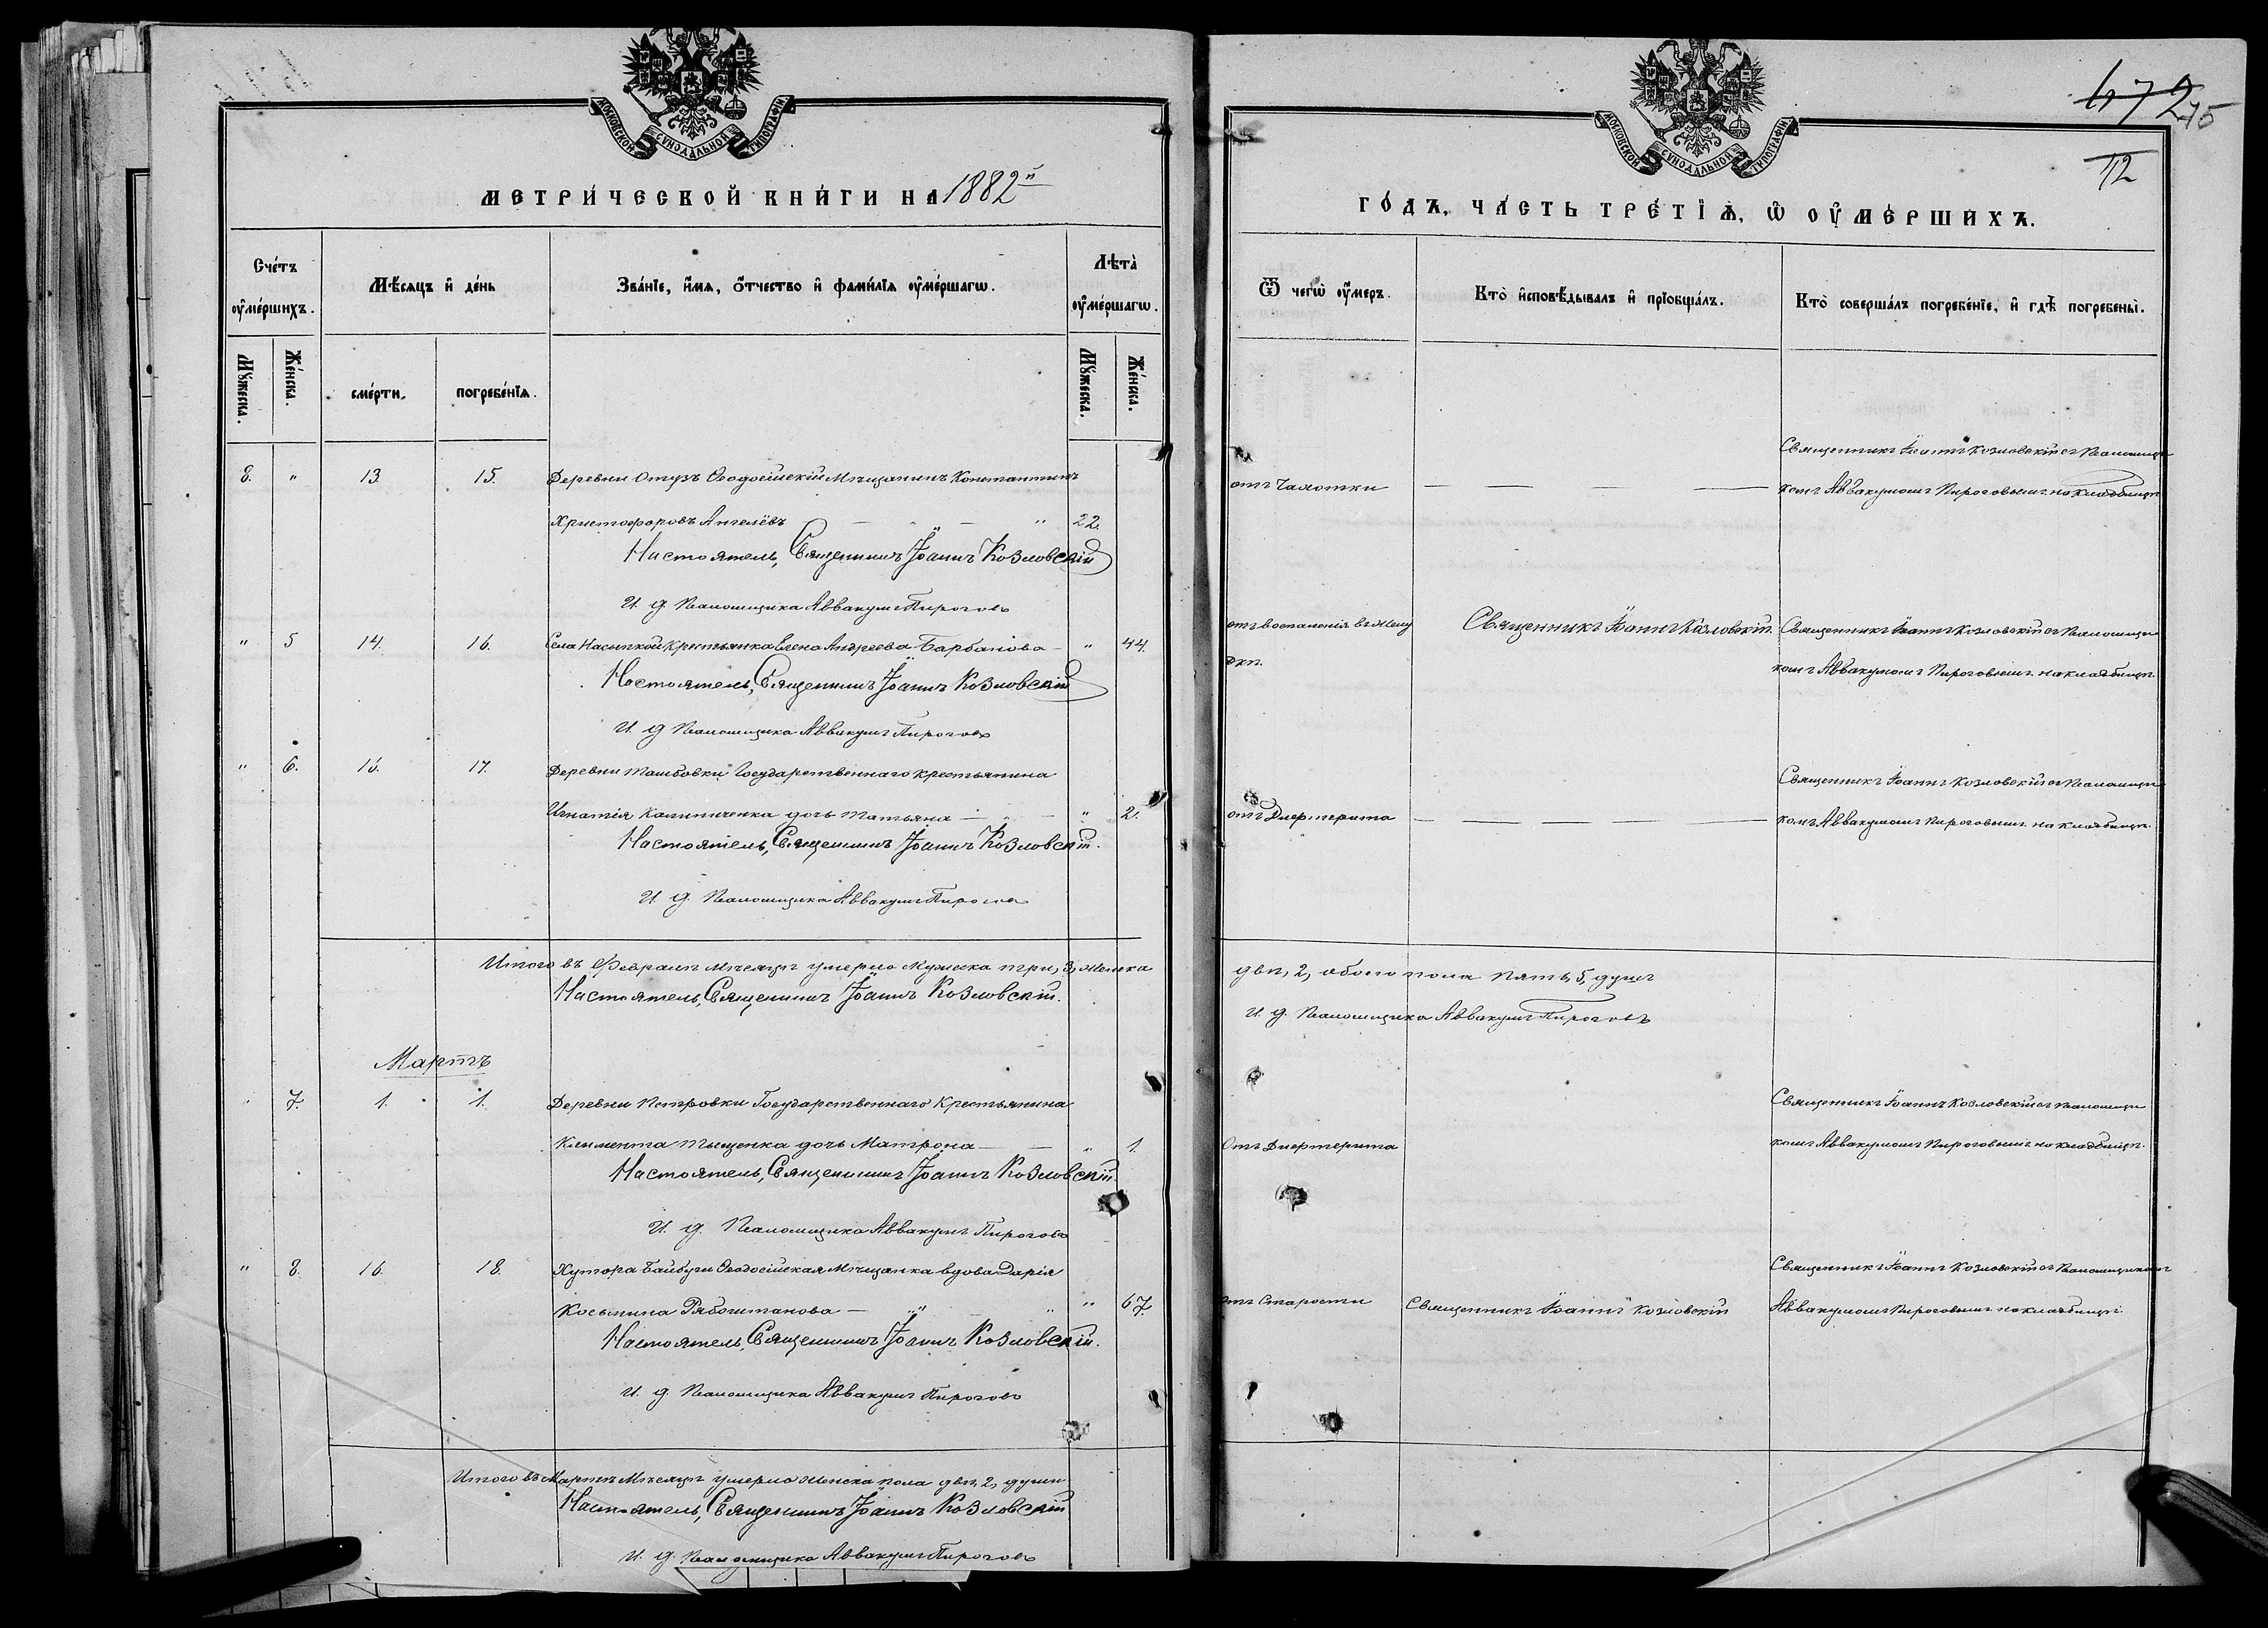 МОСКОВСКОЙ СУНОДАЛЬНОЙ ТИПОГРАФІИ
МЕТРИ́ЧЕСКОЙ КНИ́ГИ НА 1882й
Сче́тъ оу҆ме́ршихъ.
Мѣ́сяцъ и҆ де́нь
Зва́нїе, и҆́мя, ѻ҆́тчество и҆ фами́лїя оу҆ме́ршагѡ.
Лѣта̀ оу҆ме́ршагѡ.
Мꙋ́жеска.
Же́нска.
сме́рти.
погребе́нїя.
Мꙋ́жеска.
Же́нска.
8. " 13. 15. Деревни Отузъ Ѳеодосійскій Мѣщанинъ Константинъ
Христофоровъ Ангелёвъ — " — " 22.
Настоятель, Священникъ Іоаннъ Козловскій
И. д. Псаломщика Аввакумъ Пироговъ
" 5 14. 16. Села Насыпкой Крестьянка Елена Андреева Барбанова — " 44.
Настоятель, Священникъ Іоаннъ Козловскій
И. д. Псаломщика Аввакумъ Пироговъ
" 6. 15. 17. Деревни Тамбовки Государственнаго крестьянина
Игнатія Калиниченка дочь Татьяна — " — " 2.
Настоятель, Священникъ Іоаннъ Козловскій.
И. д. Псаломщика Аввакумъ Пироговъ
Итого въ Февралѣ Мѣсяцѣ умерло Мужеска три, 3, женска
Настоятель, Священникъ Іоаннъ Козловскій.
Мартъ
7. 1. 1. Деревни Петровки Государственнаго Крестьянина
Климента Тыщенка дочь Матрона — — " 1.
Настоятель, Священникъ Іоаннъ Козловскій.
И. д. Псаломщика Аввакумъ Пироговъ
" 8. 16. 18. Хутора Байбуги Ѳеодосійская Мѣщанка вдова Дарія
Косьмина Рябоштанова — " " " 67
Настоятель, Священникъ Іоаннъ Козловскій.
И. д. Псаломщика Аввакумъ Пироговъ
Итого въ Мартѣ Мѣсяцѣ умерло женска пола двѣ, 2, души
Настоятель, Священникъ Іоаннъ Козловскій
И. д. Псаломщика Аввакумъ Пироговъ
672
75
12
МОСКОВСКОЙ СУНОДАЛЬНОЙ ТИПОГРАФІИ
ГО́ДЪ, ЧА́СТЬ ТРЕ́ТЇѦ, Ѡ҆ ОУ҆МЕ́РШИХЪ.
Ѿ чегѡ̀ оу҆́меръ.
Кто̀ и҆сповѣ́дывалъ и҆ прїѡбща́лъ.
Кто̀ соверша́лъ погребе́нїе, и҆ гдѣ̀ погребены̀.
Священникъ Іоаннъ Козловскій съ Псаломщи-
отъ Чахотки — — — — комъ Аввакумомъ Пироговымъ на кладбищѣ
отъ воспаленія въ желу Священникъ Іоаннъ Козловскій. Священникъ Іоаннъ Козловскій съ Псаломщи
дкѣ. комъ Аввакумомъ Пироговымъ на кладбищѣ.
Священникъ Іоаннъ Козловскій съ Псаломщи
отъ Дифтерита — — — — комъ Аввакумомъ Пироговымъ на кладбищѣ.
двѣ, 2, обоего пола пять, 5, душъ
И. д. Псаломщика Аввакумъ Пироговъ
Священникъ Іоаннъ Козловскій съ Псаломщи
Отъ Дифтерита комъ Аввакумомъ Пироговымъ на кладбищѣ.
Священникъ Іоаннъ Козловскій съ Псаломщикомъ
отъ Старости Священникъ Іоаннъ Козловскій Аввакумомъ Пироговымъ на кладбищѣ.